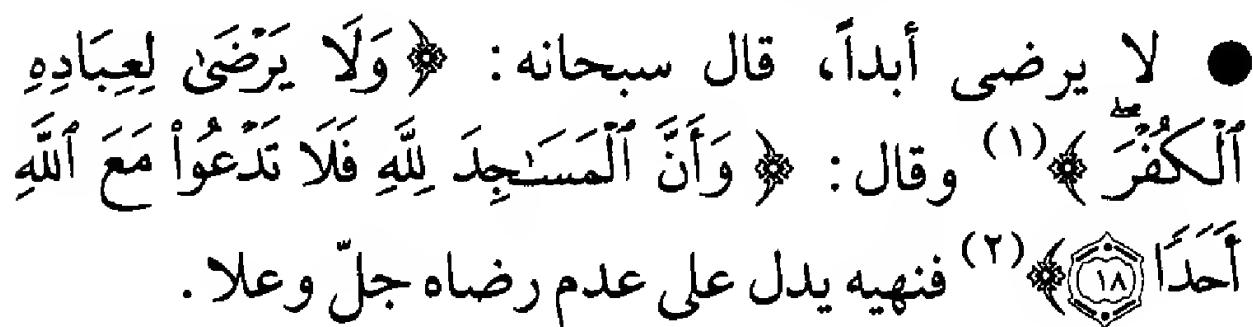 ● لا يرضى أبداً، قال سبحانه: ﴿وَلَا يَرْضَىٰ لِعِبَادِهِ
ٱلْكُفْرَۖ﴾(١) وقال: ﴿وَأَنَّ ٱلْمَسَـٰجِدَ لِلَّهِ فَلَا تَدْعُوا۟ مَعَ ٱللَّهِ
أَحَدًا ١٨﴾(٢) فنهيه يدل على عدم رضاه جلّ وعلا.